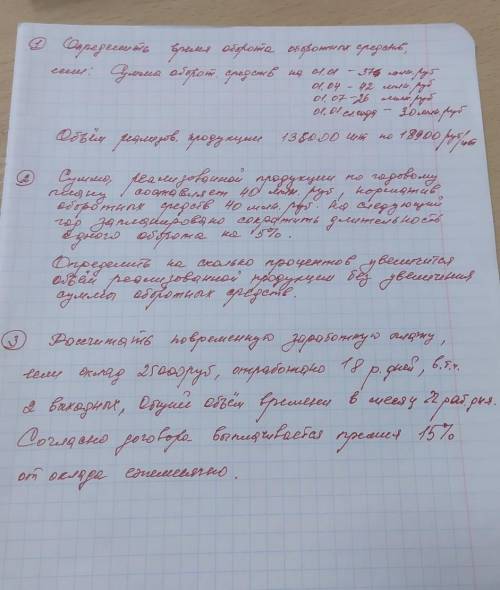 ① Определить время оборота оборотных средств,
если: Сумма оборот. средств на 01.01 - млн.руб
01.04 - 42 млн.руб
01.07 - 26 млн.руб
01.01 - 30 млн.руб
Объём реализов. продукции 138000 шт по 18900 руб/шт
② Сумма, реализованной продукции по годовому
плану составляет 40 млн. руб, норматив
оборотных средств 40 млн. руб. На следующий
год запланировано сократить длительность
одного оборота на 5%.
Определить на сколько процентов увеличится
объём реализованной продукции без увеличения
суммы оборотных средств.
③ Рассчитать повременную заработную плату,
если оклад 25000руб, отработано 18 р.дней, в.т.ч.
2 выходных, Общий объём времени в месяц раб.дня.
Согласно договора выплачивается премия 15%
от оклада ежемесячно.